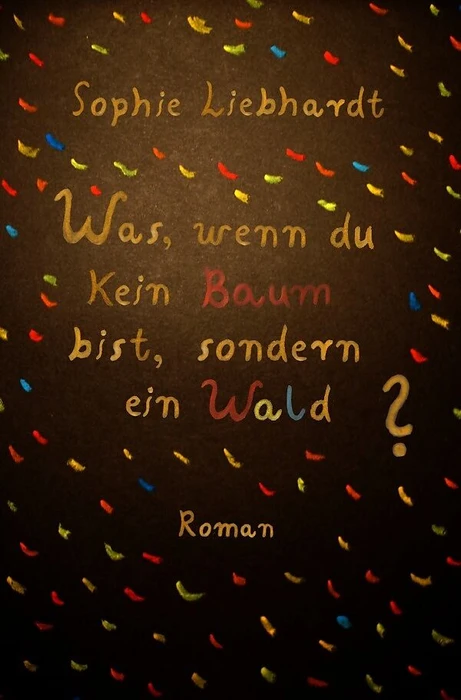 Sophie Liebhardt
Was, wenn du
Kein Baum
bist, sondern
ein Wald ?
Roman